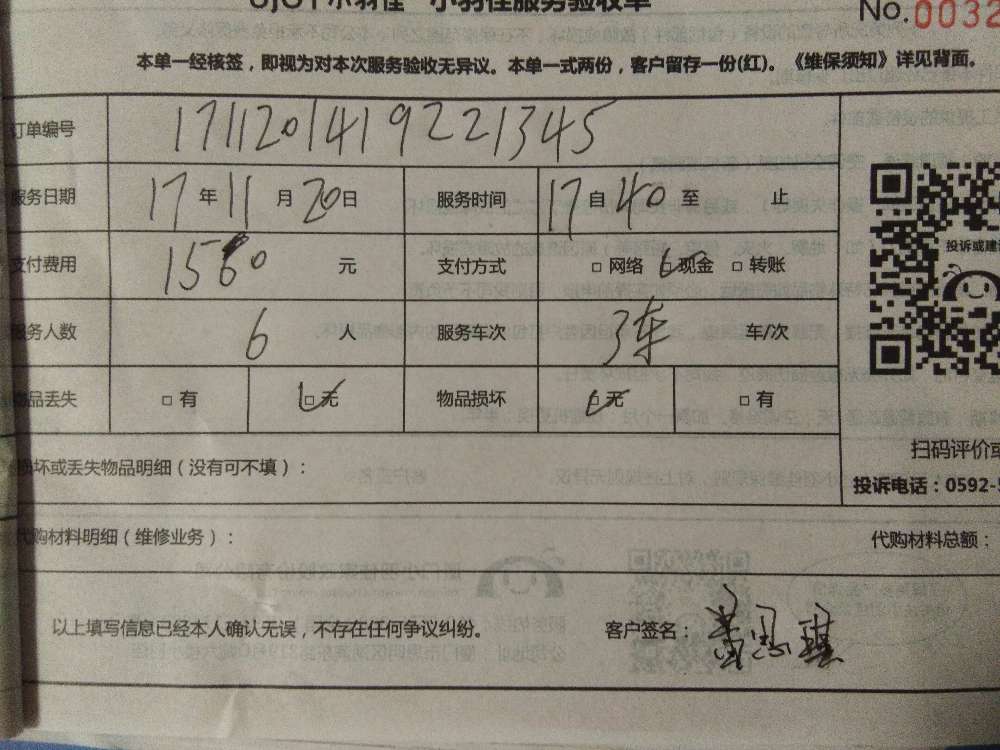 小羽佳服务验收单
No.0032
本单一经核签，即视为对本次服务验收无异议。本单一式两份，客户留存一份(红)。《维保须知》详见背面。
订单编号 1711201419221345
服务日期 17 年 11 月 20 日 服务时间 17 自 40 至 止
支付费用 1560 元 支付方式 □ 网络 □ 现金 □ 转账
投诉或建议
服务人数 6 人 服务车次 3车 车/次
物品丢失 □ 有 □ 无 物品损坏 □ 无 □ 有
扫码评价或
损坏或丢失物品明细（没有可不填）：
投诉电话：0592-5
代购材料明细（维修业务）： 代购材料总额：
以上填写信息已经本人确认无误，不存在任何争议纠纷。 客户签名：